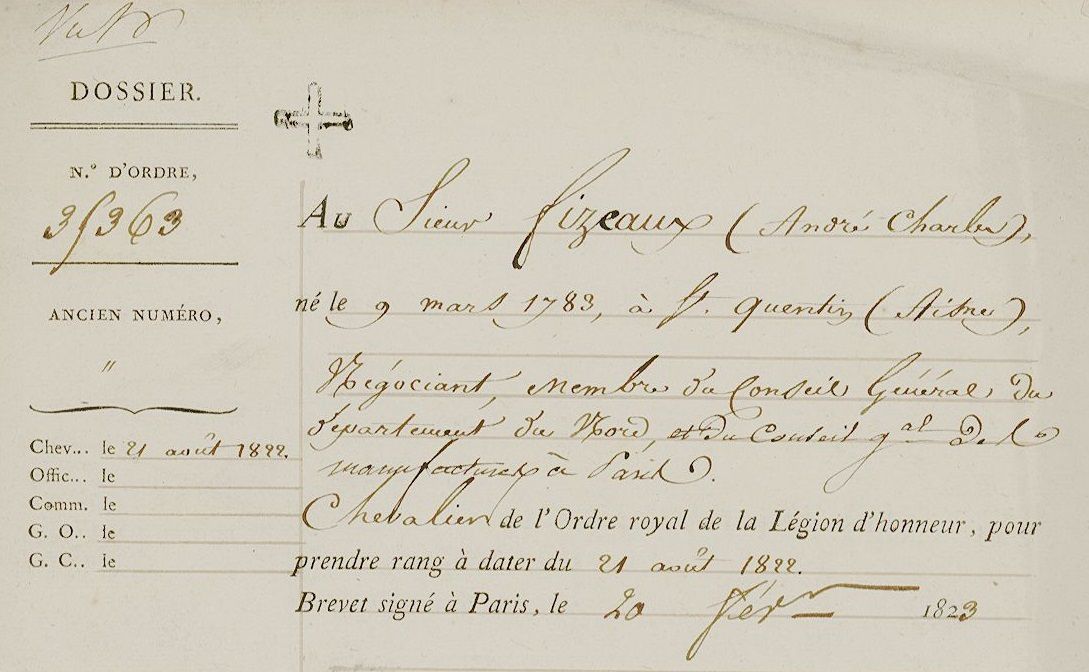 DOSSIER.
N.º D'ORDRE,
35363
ANCIEN NUMÉRO,
"
Chev... le 21 août 1822.
Offic... le
Comm. le
G. O.. le
G. C.. le
AU Sieur fizeaux (André Charles),
né le 9 mars 1783, à St. Quentin (Aisne),
Négociant, Membre du Conseil Général du
département du Nord, et du Conseil gal des
manufactures à Paris.
Chevalier de l'Ordre royal de la Légion d'honneur, pour
prendre rang à dater du 21 août 1822.
Brevet signé à Paris, le 20 févr 1823